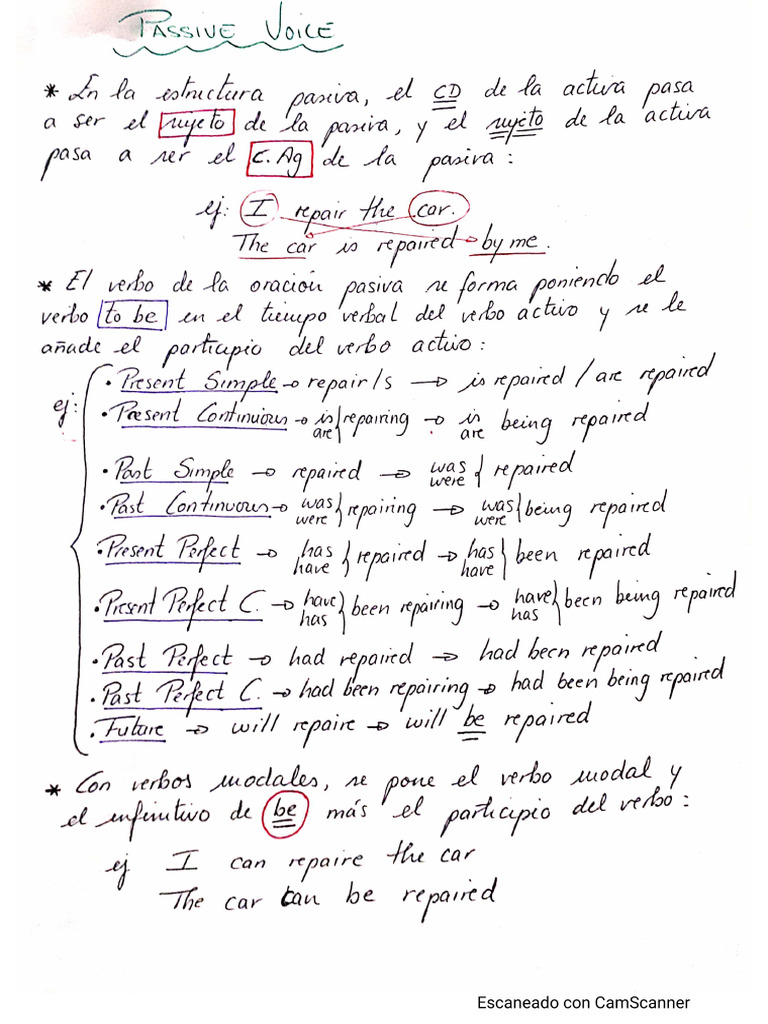 PASSIVE VOICE
* En la estructura pasiva, el CD de la activa pasa
a ser el sujeto de la pasiva, y el sujeto de la activa
pasa a ser el C. Ag de la pasiva:
ej: I repair the car.
The car is repaired by me.
* El verbo de la oración pasiva se forma poniendo el
verbo to be en el tiempo verbal del verbo activo y se le
añade el participio del verbo activo:
ej:
• Present Simple → repair/s → is repaired / are repaired
• Present Continuous → is/are} repairing → is/are being repaired
• Past Simple → repaired → was/were} repaired
• Past Continuous → was/were} repairing → was/were} being repaired
• Present Perfect → has/have} repaired → has/have} been repaired
• Present Perfect C. → have/has} been repairing → have/has} been being repaired
• Past Perfect → had repaired → had been repaired
• Past Perfect C. → had been repairing → had been being repaired
• Future → will repaire → will be repaired
* Con verbos modales, se pone el verbo modal y
el infinitivo de be más el participio del verbo:
ej I can repaire the car
The car can be repaired
Escaneado con CamScanner